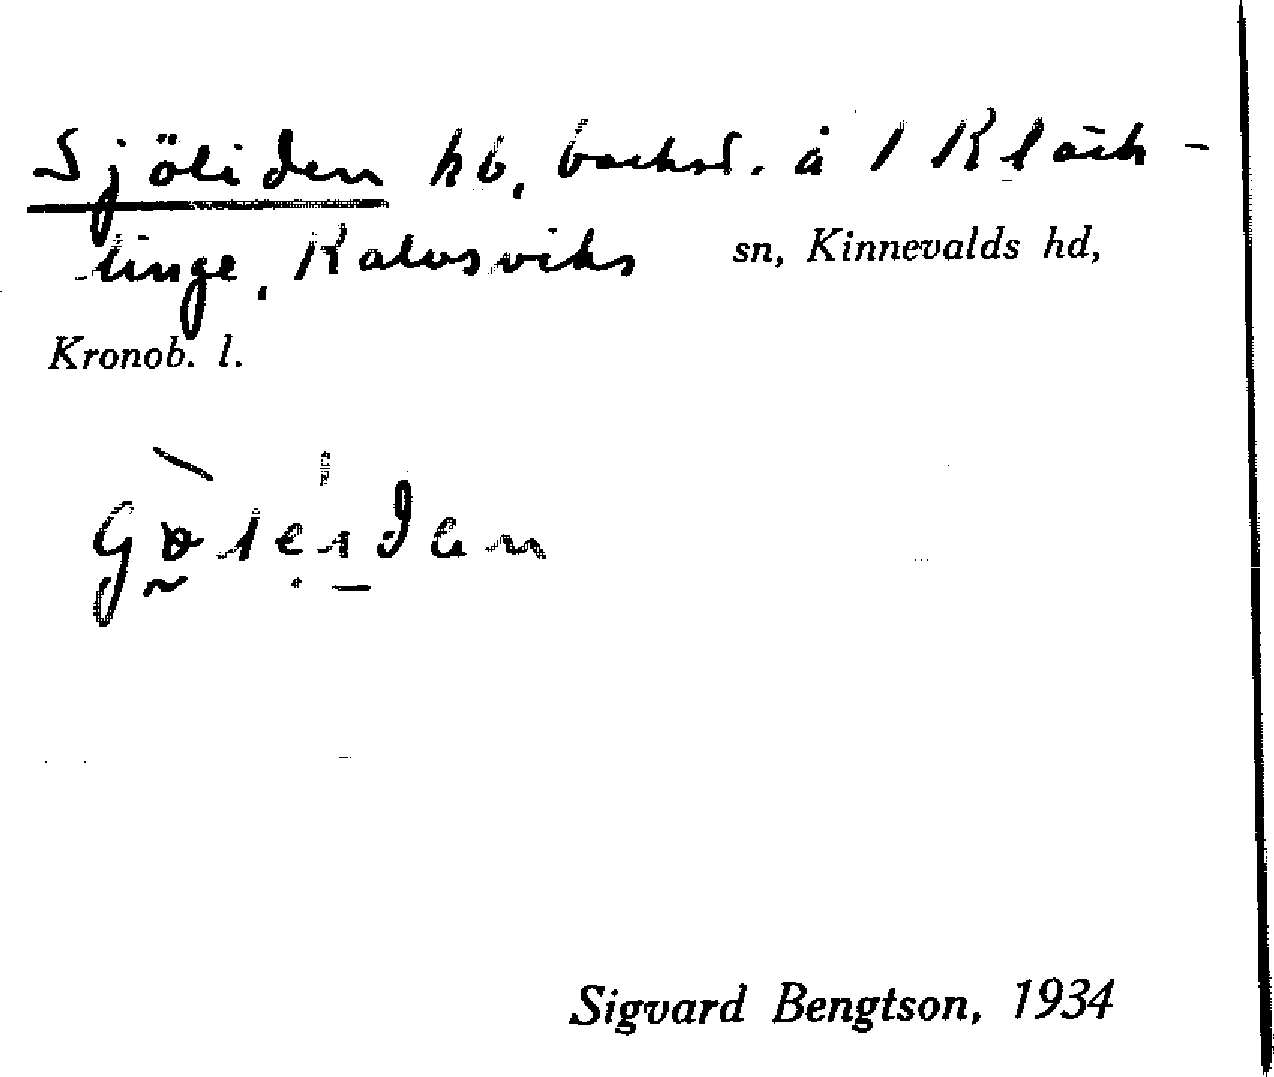 Sjöliden hb, backst. å 1 Kläck-
linge, Kalvsviks sn, Kinnevalds hd,
Kronob. l.
Sigvard Bengtson, 1934